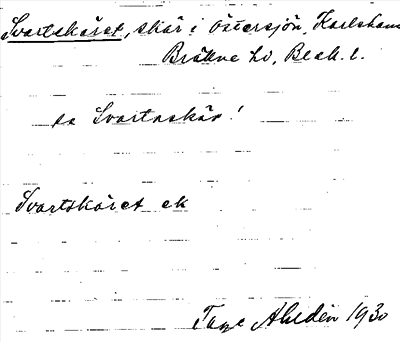 Svartskäret, skär i Östersjön, Karlshamn
Bräkne hd, Blek. l.
se Svartaskär!
Svartskäret ek
Tage Ahldén 1930